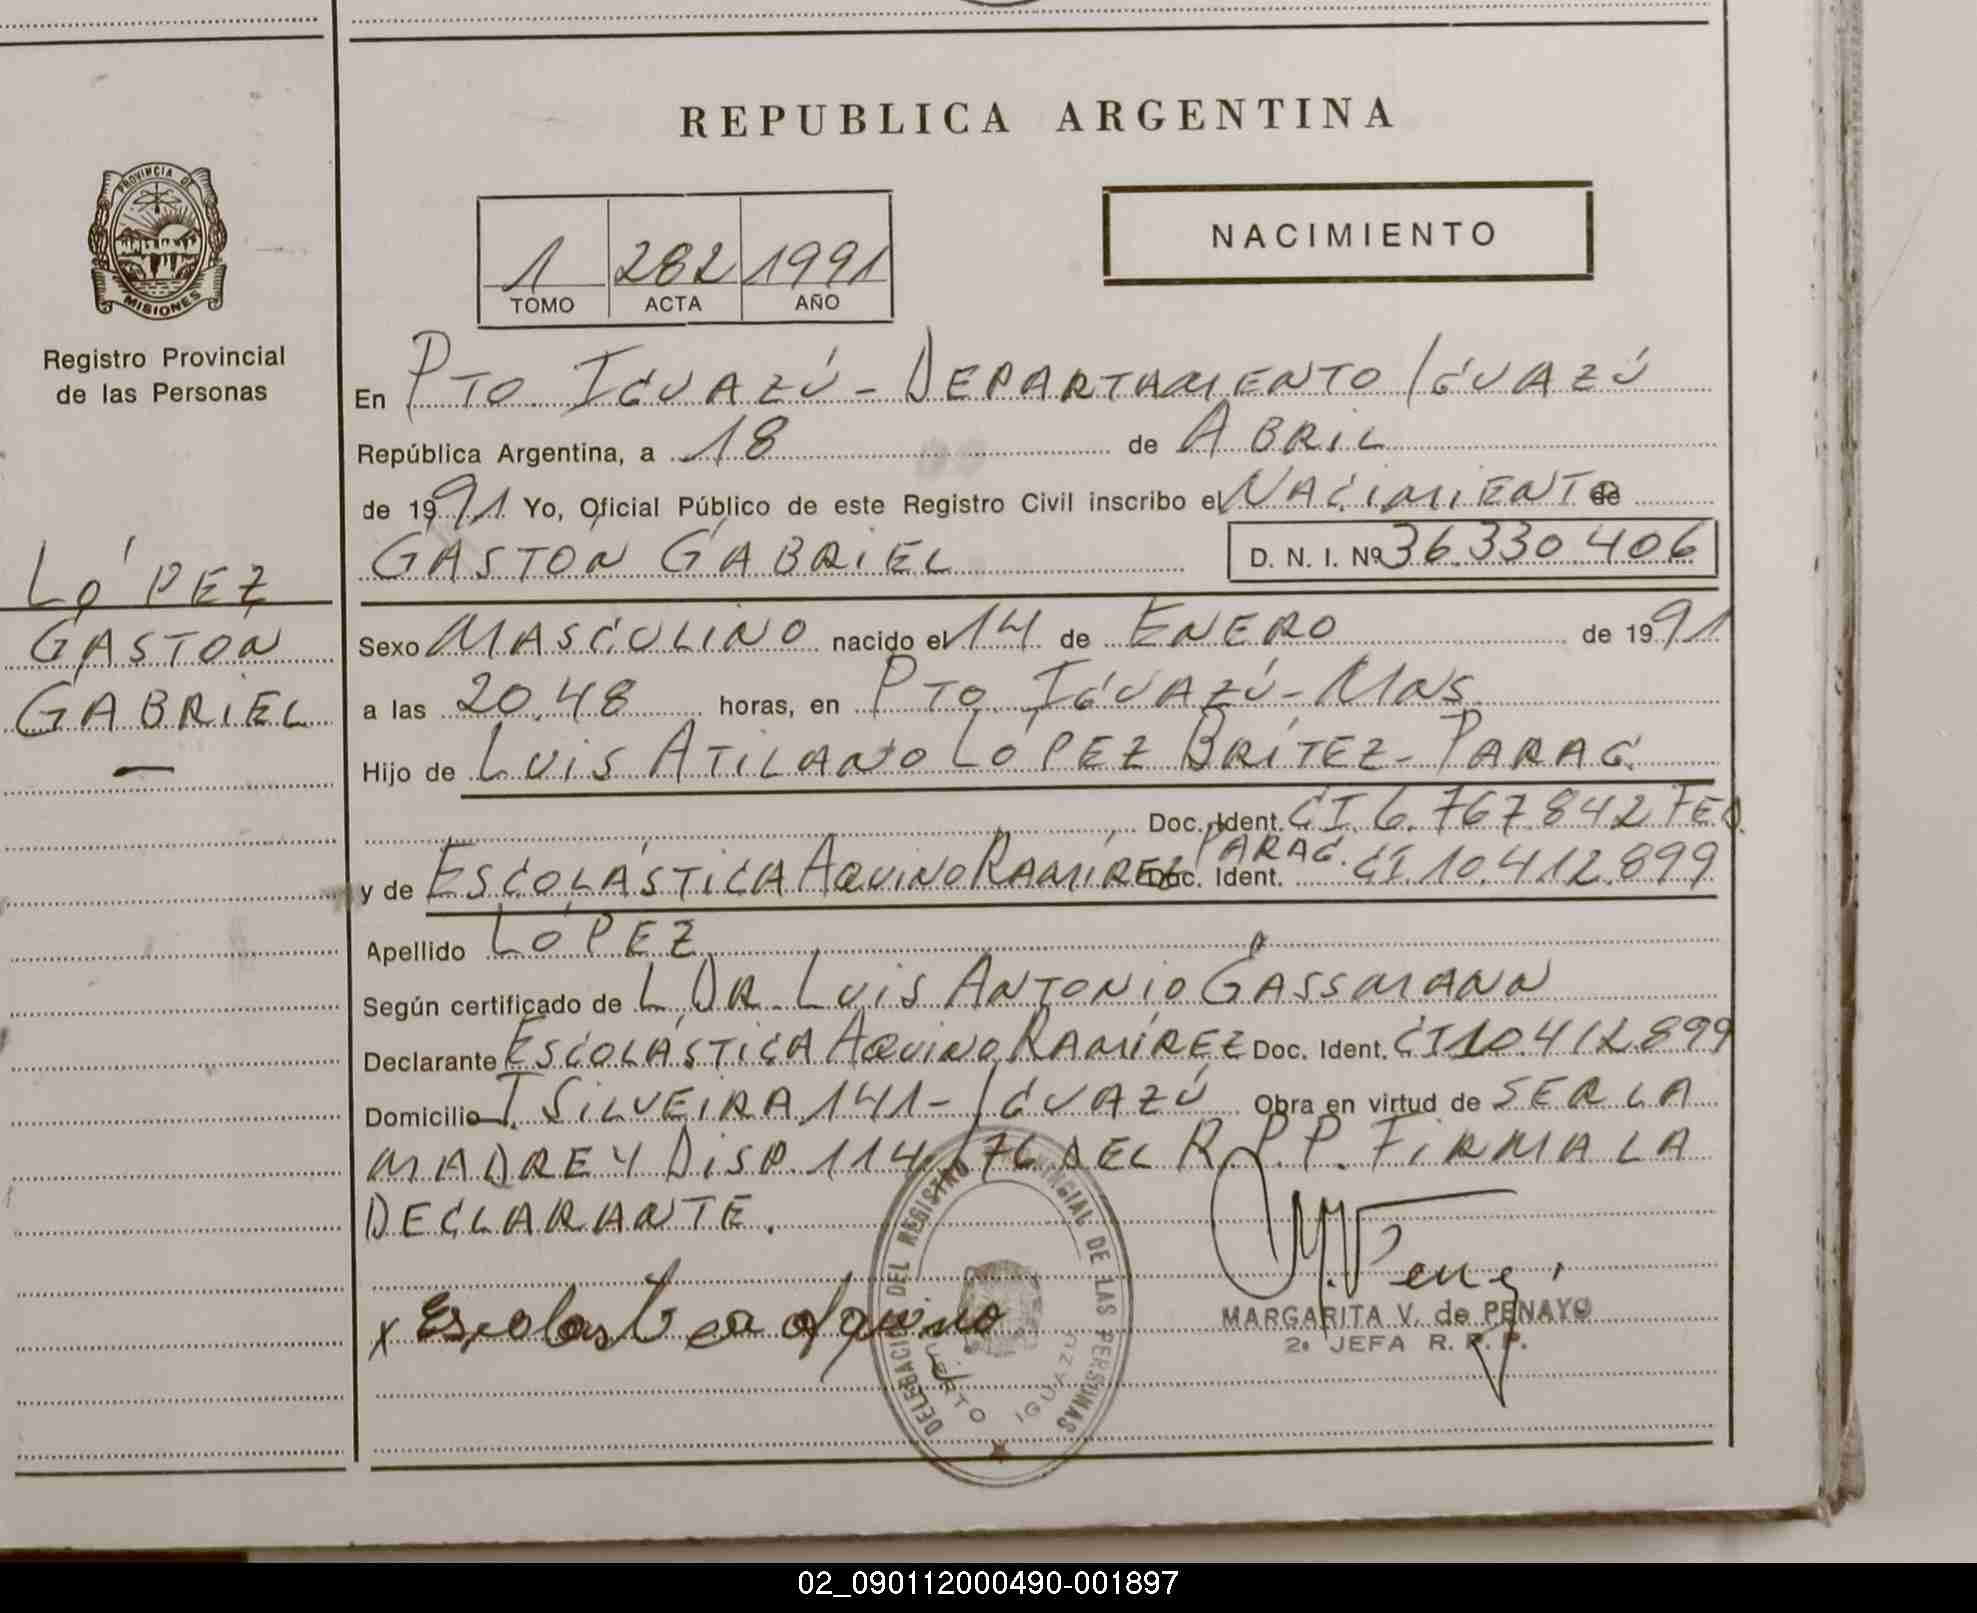 REPUBLICA ARGENTINA
PROVINCIA DE
MISIONES
Registro Provincial
de las Personas
LÓPEZ
GASTON
GABRIEL
1 282 1991
TOMO ACTA AÑO
NACIMIENTO
En PTO. IGUAZÚ - DEPARTAMENTO IGUAZÚ
República Argentina, a 18 de ABRIL
de 1991 Yo, Oficial Público de este Registro Civil inscribo el NACIMIENTO de
GASTÓN GABRIEL D. N. I. Nº 36.330.406
Sexo MASCULINO nacido el 14 de ENERO de 1991
a las 20.48 horas, en PTO. IGUAZÚ - MNS.
Hijo de LUIS ATILANO LÓPEZ BRÍTEZ - PARAG.
Doc. Ident. CI. 6.767.842 FED.
y de ESCOLÁSTICA AQUINO RAMÍREZ PARAG. Doc. Ident. CI. 10.412.899
Apellido LÓPEZ
Según certificado de L DR. LUIS ANTONIO GASSMANN
Declarante ESCOLÁSTICA AQUINO RAMÍREZ Doc. Ident. CI 10.412.899
Domicilio T. SILVEIRA 141 - IGUAZÚ Obra en virtud de SER LA
MADRE Y DISP. 114/76 DEL R.P.P. FIRMA LA
DECLARANTE.
x Escolastica Aquino
DELEGACION DEL REGISTRO PROVINCIAL DE LAS PERSONAS
PUERTO IGUAZU
MARGARITA V. de PENAYO
2ª JEFA R. P. P.
02_090112000490-001897